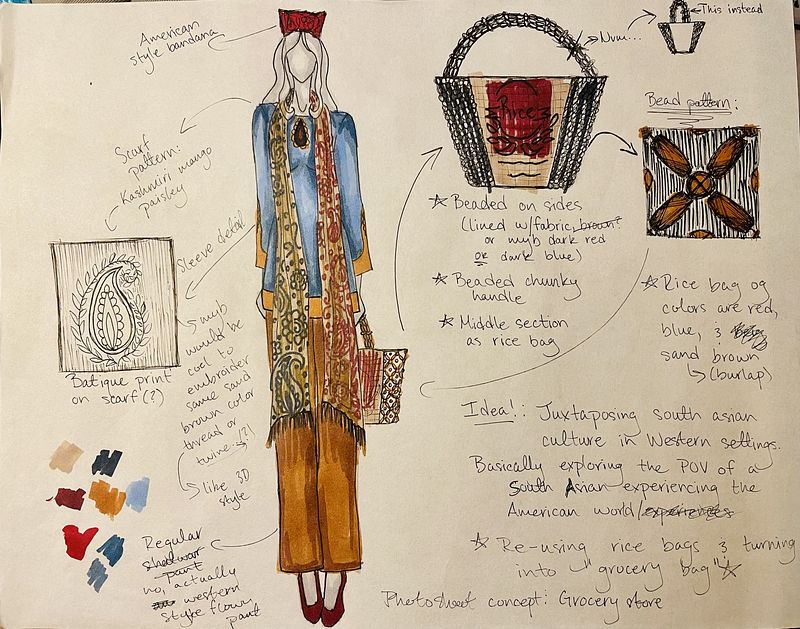 American
style bandana
Scarf
pattern:
Kashmiri mango
paisley
Sleeve detail
Batique print
on scarf (?)
↳ myb
would be
cool to
embroider
same sand
brown color
thread or
twine..!?!
↳ like 3D
style
Regular
shalwar
pant
no, actually
western
style flowy
pant
Rice
Nvm...
This instead
Bead pattern:
☆ Beaded on sides
(lined w/fabric, brown?
or myb dark red
or dark blue)
☆ Beaded chunky
handle
☆ Middle section
as rice bag
☆ Rice bag og
colors are red,
blue, &
sand brown
↳ (burlap)
Idea!: Juxtaposing south asian
culture in Western settings.
Basically exploring the POV of a
South Asian experiencing the
American world/experiences
☆ Re-using rice bags & turning
into "grocery bag" ☆
Photoshoot concept: Grocery store